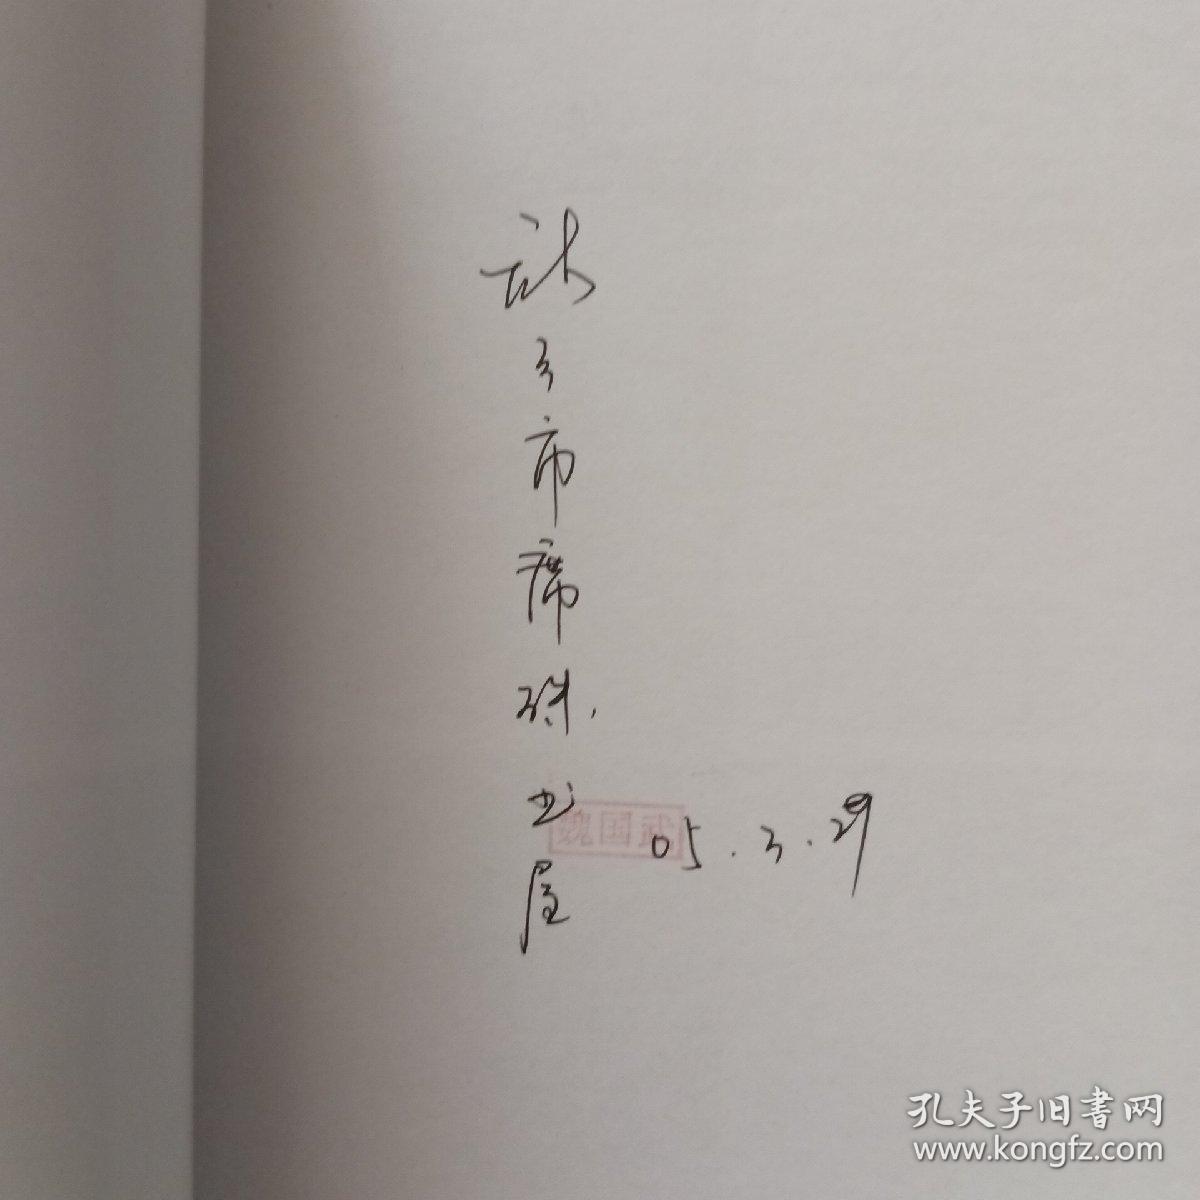 购于市席殊
书屋
魏国武
05.3.29
孔夫子旧书网
www.kongfz.com